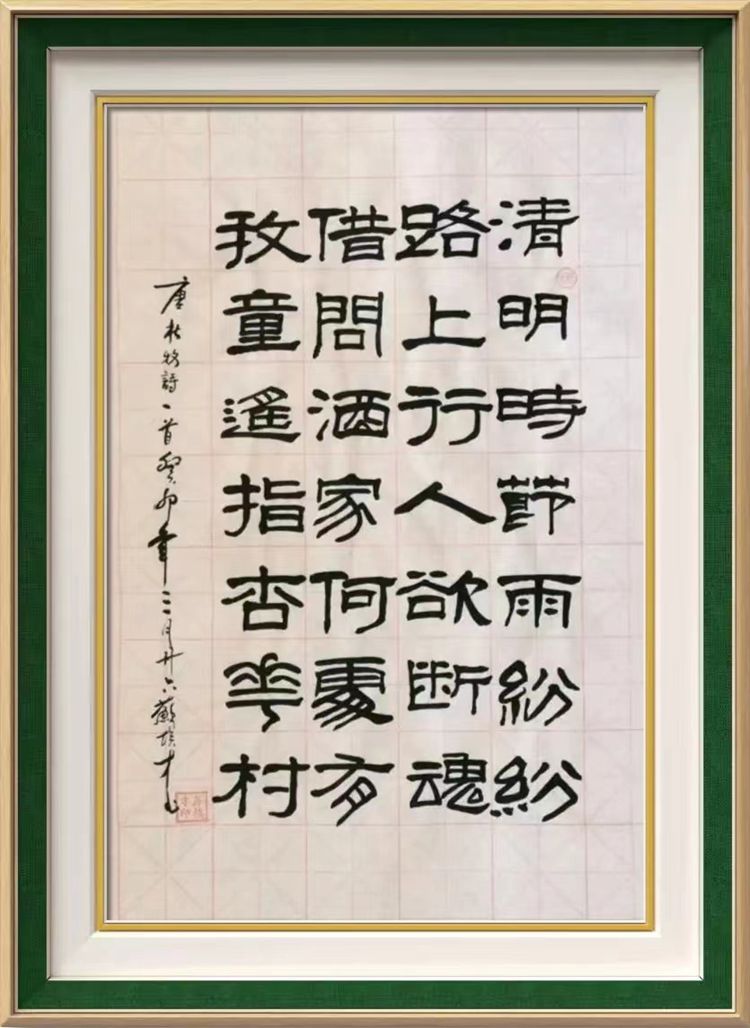 清明時節雨紛紛
路上行人欲断魂
借問酒家何處有
牧童遙指杏華村
唐杜牧詩一首癸卯年三月廿六蘇